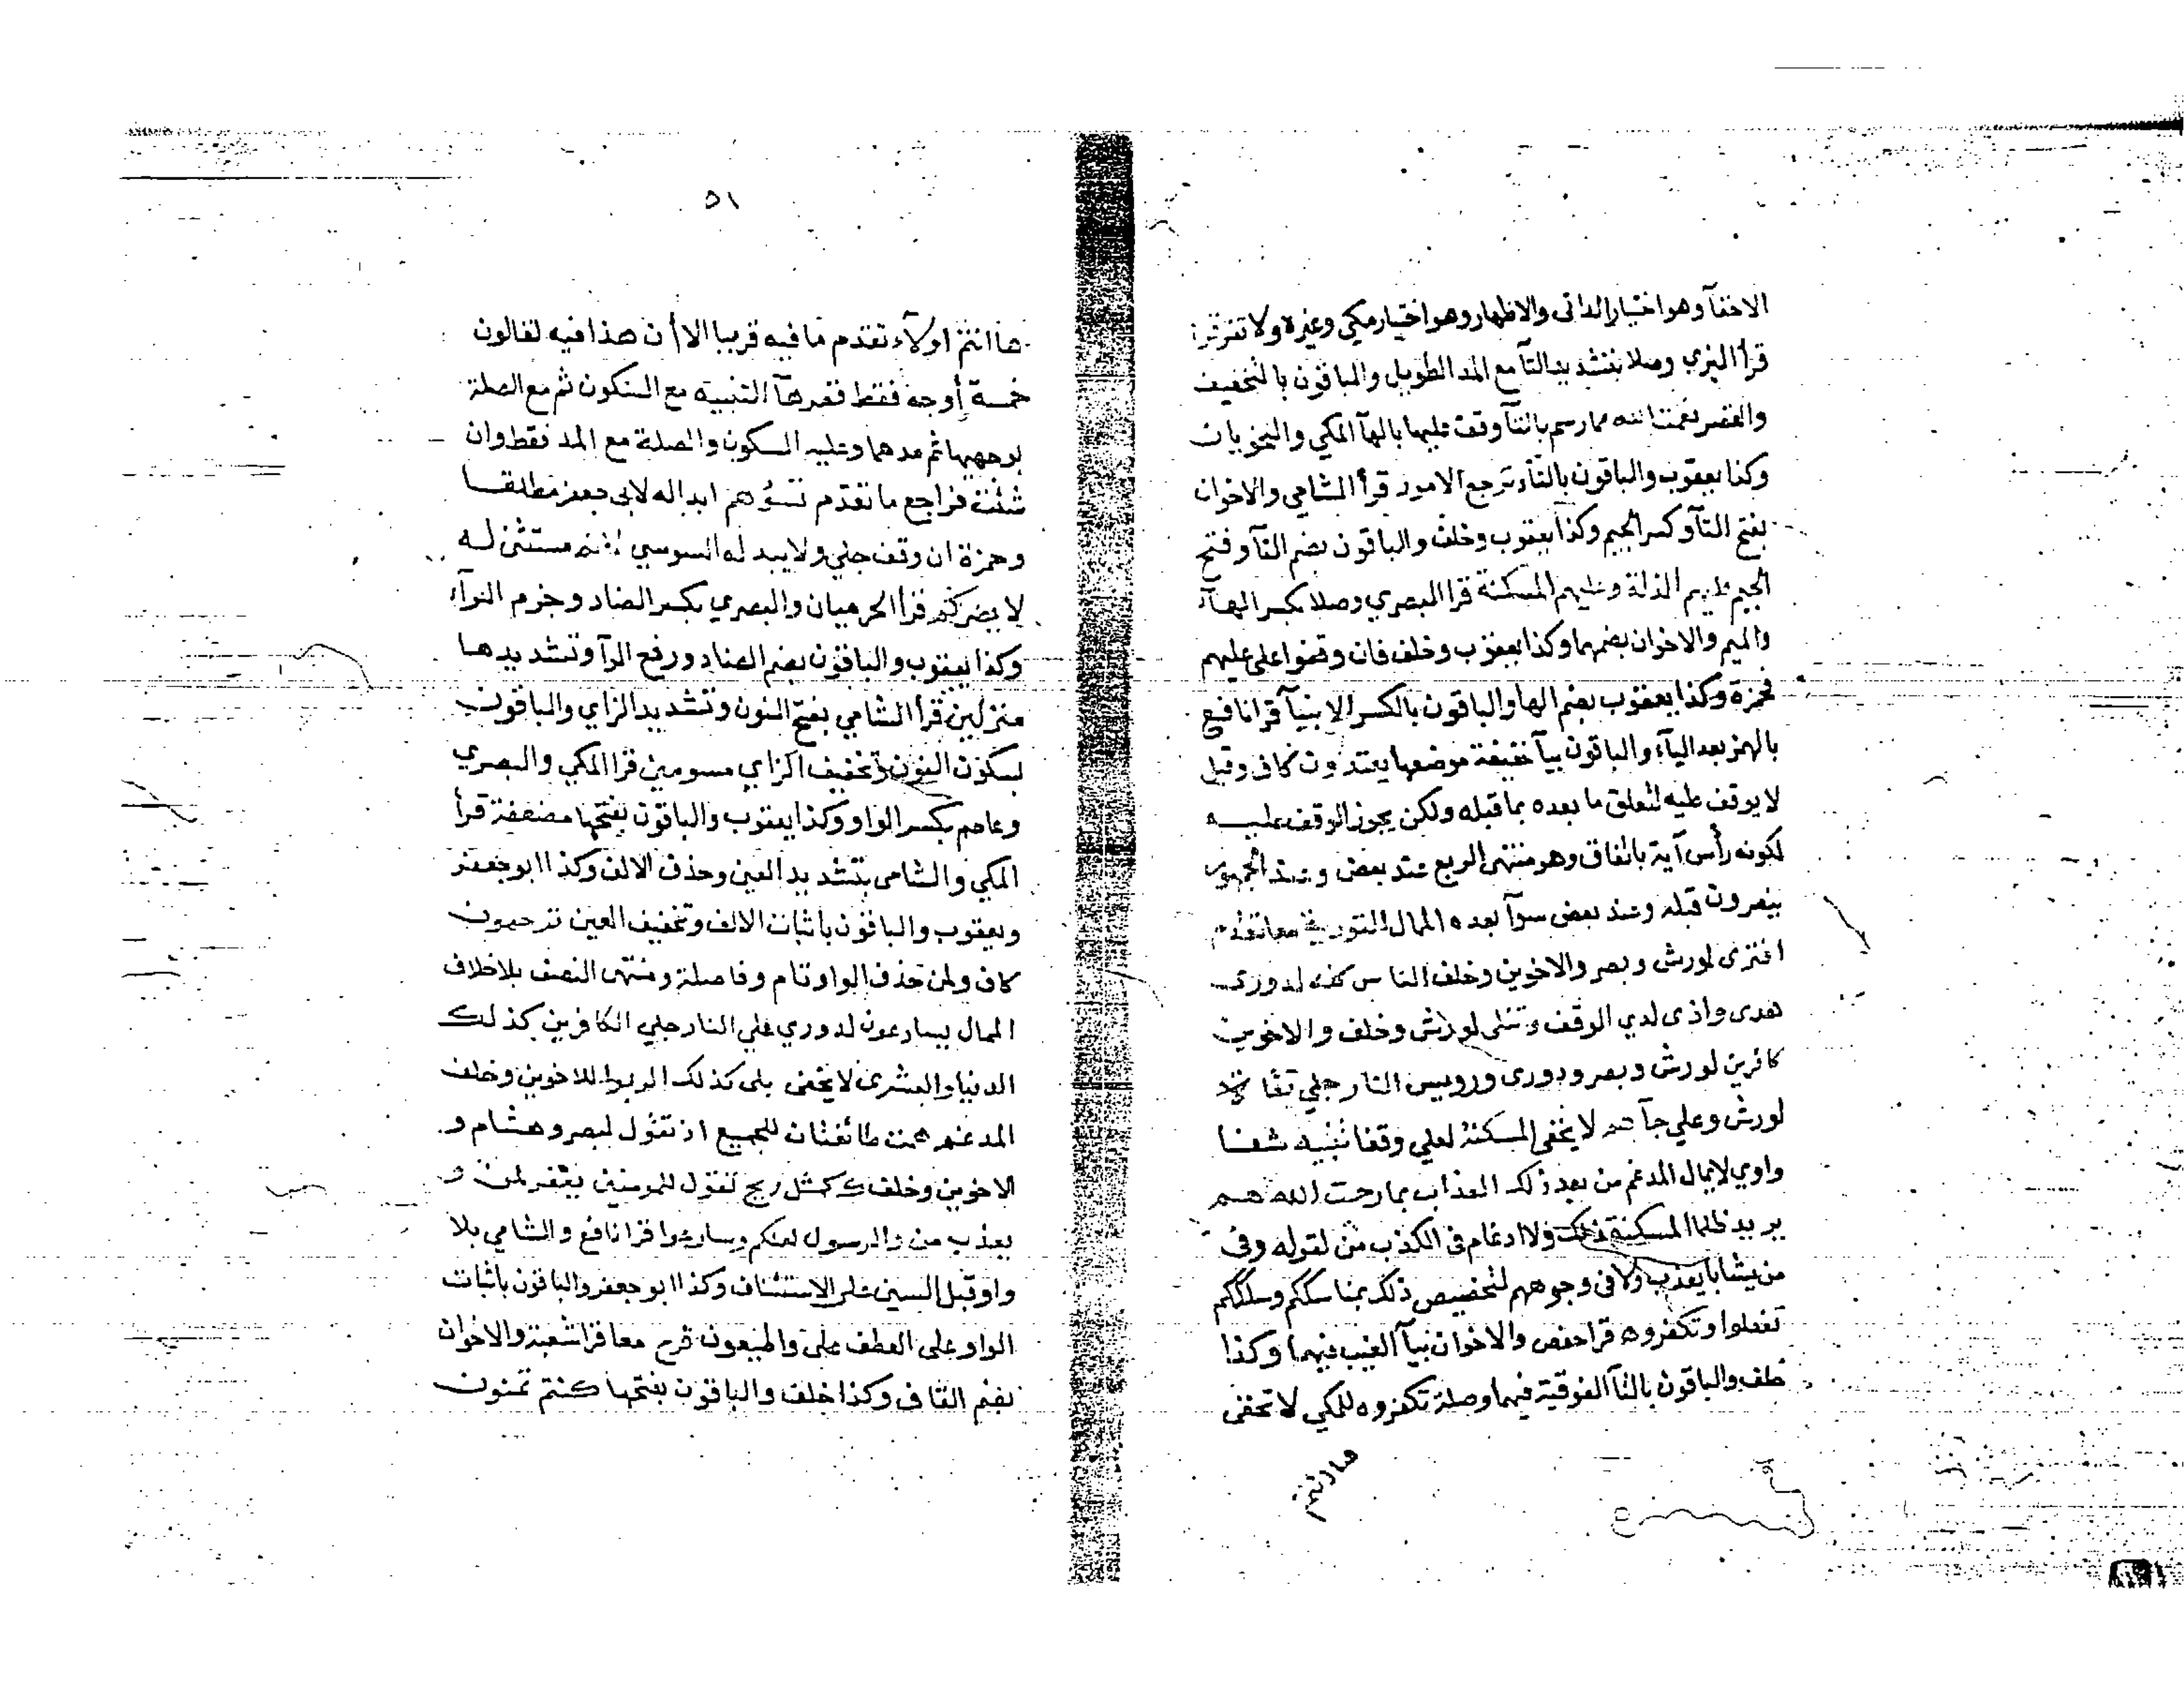 الاخفآ وهو اختيار الدانى والاظهار وهو اختيار مكي وغيره ولا تفرقوا
قرأ البزي وصلا بتشديد التآ مع المد الطويل والباقون بالتخفيف
والقصر نعمت الله مما رسم بالتآ وقف عليها بالهآ المكي والنحويان
وكذا يعقوب والباقون بالتآء ترجع الامور قرأ الشامي والاخوان
بفتح التآ وكسر الجيم وكذا يعقوب وخلف والباقون بضم التآ وفتح
الجيم عليهم الذلة وعليهم المسكنة قرا البصري وصلا بكسر الهآء
والميم والاخوان بضمهما وكذا يعقوب وخلف فان وقفوا على عليهم
فحمزة وكذا يعقوب بضم الها والباقون بالكسر الانبيآ قرا نافع
بالهمز بعد اليآء والباقون بيآ خفيفة موضعها يعتدون كاف وقيل
لا يوقف عليه لتعلق ما بعده بما قبله ولكن يجوز الوقف عليه
لكونه رأس آية باتفاق وهو منتهى الربع عند بعض وعند الجمهور
ينصرون قبله وعند بعض سوآ بعده الممال التورية معا تقدم
افترى لورش وبصر والاخوين وخلف الناس كله لدورى
هدى واذى لدي الوقف وتتلى لورش وخلف والاخوين
كافرين لورش وبصر ودورى ورويس النار جلي تقاته
لورش وعلي جآهم لا يخفى المسكنة لعلي وقفا تنبيه شفا
واوي لا يمال المدغم من بعد ذلك العذاب بما رحمت الله هم
يريد ظلما المسكنة ذلك ولا ادغام فى الكذب من لقوله وفى
من يشا بايعذب ولا فى وجوههم لتخصيص ذلك بمناسككم وسلككم
تفعلوا وتكفروه قرا حفص والاخوان بيآ الغيب فيهما وكذا
خلف والباقون بالتآ الفوقية فيهما وصلة تكفروه للمكي لا تخفى
هاانتم
٥١
هاانتم اولآء تقدم ما فيه قريبا الا أن هذا فيه لقالون
خمسة أوجه فقط قصر هآ التنبيه مع السكون ثم مع الصلة
بوجهيها ثم مدهما وعليه السكون والصلة مع المد فقط وان
شئت فراجع ما تقدم تسؤهم ابداله لابى جعفر مطلقا
وحمزة ان وقف جلي ولا يبدله السوسي لانه مستثنى له
لا يضركم قرأ الحرميان والبصري بكسر الضاد وجزم الرآء
وكذا يعقوب والباقون بضم الضاد ورفع الرآ وتشديدها
منزلين قرأ الشامي بفتح النون وتشديد الزاي والباقون
بسكون النون وتخفيف الزاي مسومين قرا المكي والبصري
وعاصم بكسر الواو وكذا يعقوب والباقون بفتحها مضعفة قرأ
المكي والشامى بتشديد العين وحذف الالف وكذا ابو جعفر
ويعقوب والباقون باثبات الالف وتخفيف العين ترحمون
كاف ولمن حذف الواو تام وفاصلة ومنتهى النصف بلاخلاف
الممال يسارعون لدوري علي النار جلي الكافرين كذلك
الدنيا والبشرى لا يخفى بلى كذلك الربوا للاخوين وخلف
المدغم همت طائفتان للجميع اذ تقول لبصر وهشام و
الاخوين وخلف ك كمثل ريح تقول للمومنين يغفر لمن و
يعذب من والرسول لعلكم وسارعوا قرا نافع والشامي بلا
واو قبل السين على الاستئناف وكذا ابو جعفر والباقون باثبات
الواو على العطف على واطيعون قرح معا قرا شعبة والاخوان
بضم القاف وكذا خلف والباقون بفتحها كنتم تمنون